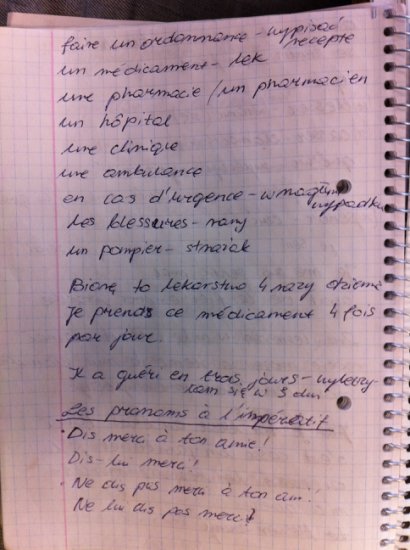 faire un ordonnance - wypisać
recepte
un médicament - lek
une pharmacie / un pharmacien
un hôpital
une clinique
une ambulance
en cas d'urgence - w nagłym
wypadku
les blessures - rany
un pompier - strażak
Biorę to lekarstwo 4 razy dziennie
Je prends ce médicament 4 fois
par jour.
Il a guéri en trois jours - wyleczy-
łam się w 3 dni
Les pronoms à l'impératif
· Dis merci à ton amie!
Dis-lui merci!
· Ne dis pas merci à ton ami!
Ne lui dis pas merci!